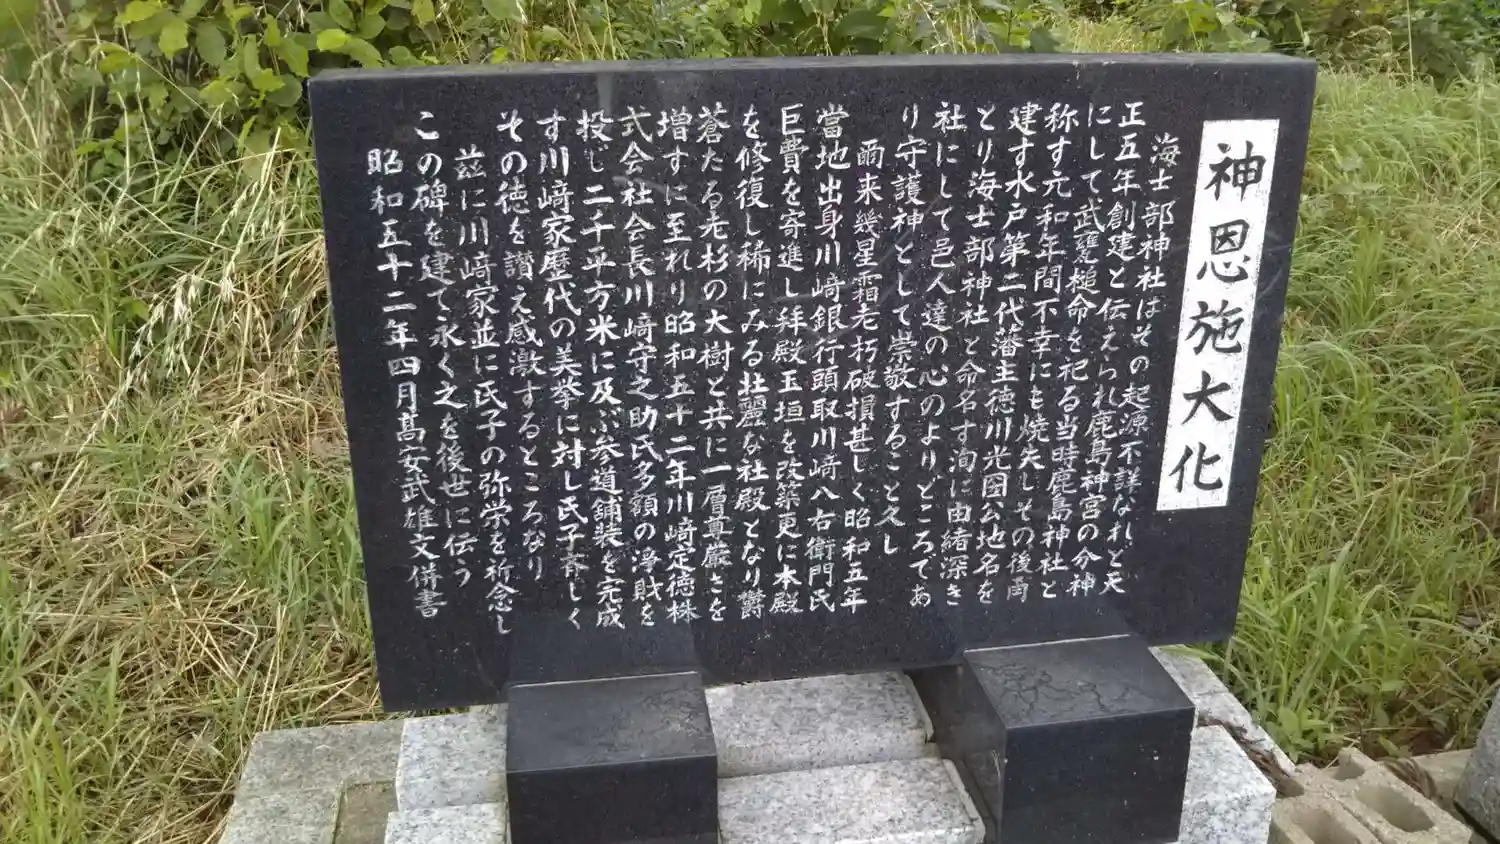 神恩施大化
海士部神社はその起源不詳なれど天
正五年創建と伝えられ鹿島神宮の分神
にして武甕槌命を祀る当時鹿島神社と
称す元和年間不幸にも焼失しその後再
建す水戸第二代藩主徳川光圀公地名を
とり海士部神社と命名す洵に由緒深き
社にして邑人達の心のよりどころであ
り守護神として崇敬すること久し
爾来幾星霜老朽破損甚しく昭和五年
當地出身川﨑銀行頭取川﨑八右衛門氏
巨費を寄進し拝殿玉垣を改築更に本殿
を修復し稀にみる壮麗な社殿となり欝
蒼たる老杉の大樹と共に一層尊厳さを
増すに至れり昭和五十二年川﨑定徳株
式会社会長川﨑守之助氏多額の浄財を
投じ二千平方米に及ぶ参道舗装を完成
す川﨑家歴代の美挙に対し氏子斉しく
その徳を讃え感激するところなり
茲に川﨑家並に氏子の弥栄を祈念し
この碑を建て永く之を後世に伝う
昭和五十二年四月髙安武雄文併書